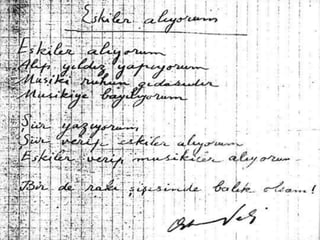 Eskiler alıyorum
Eskiler alıyorum
Alıp yıldız yapıyorum
Musiki ruhun gıdasıdır
Musikiye bayılıyorum
Şiir yazıyorum
Şiir verip eskiler alıyorum
Eskiler verip musikiler alıyorum
Bir de rakı şişesinde balık olsam!